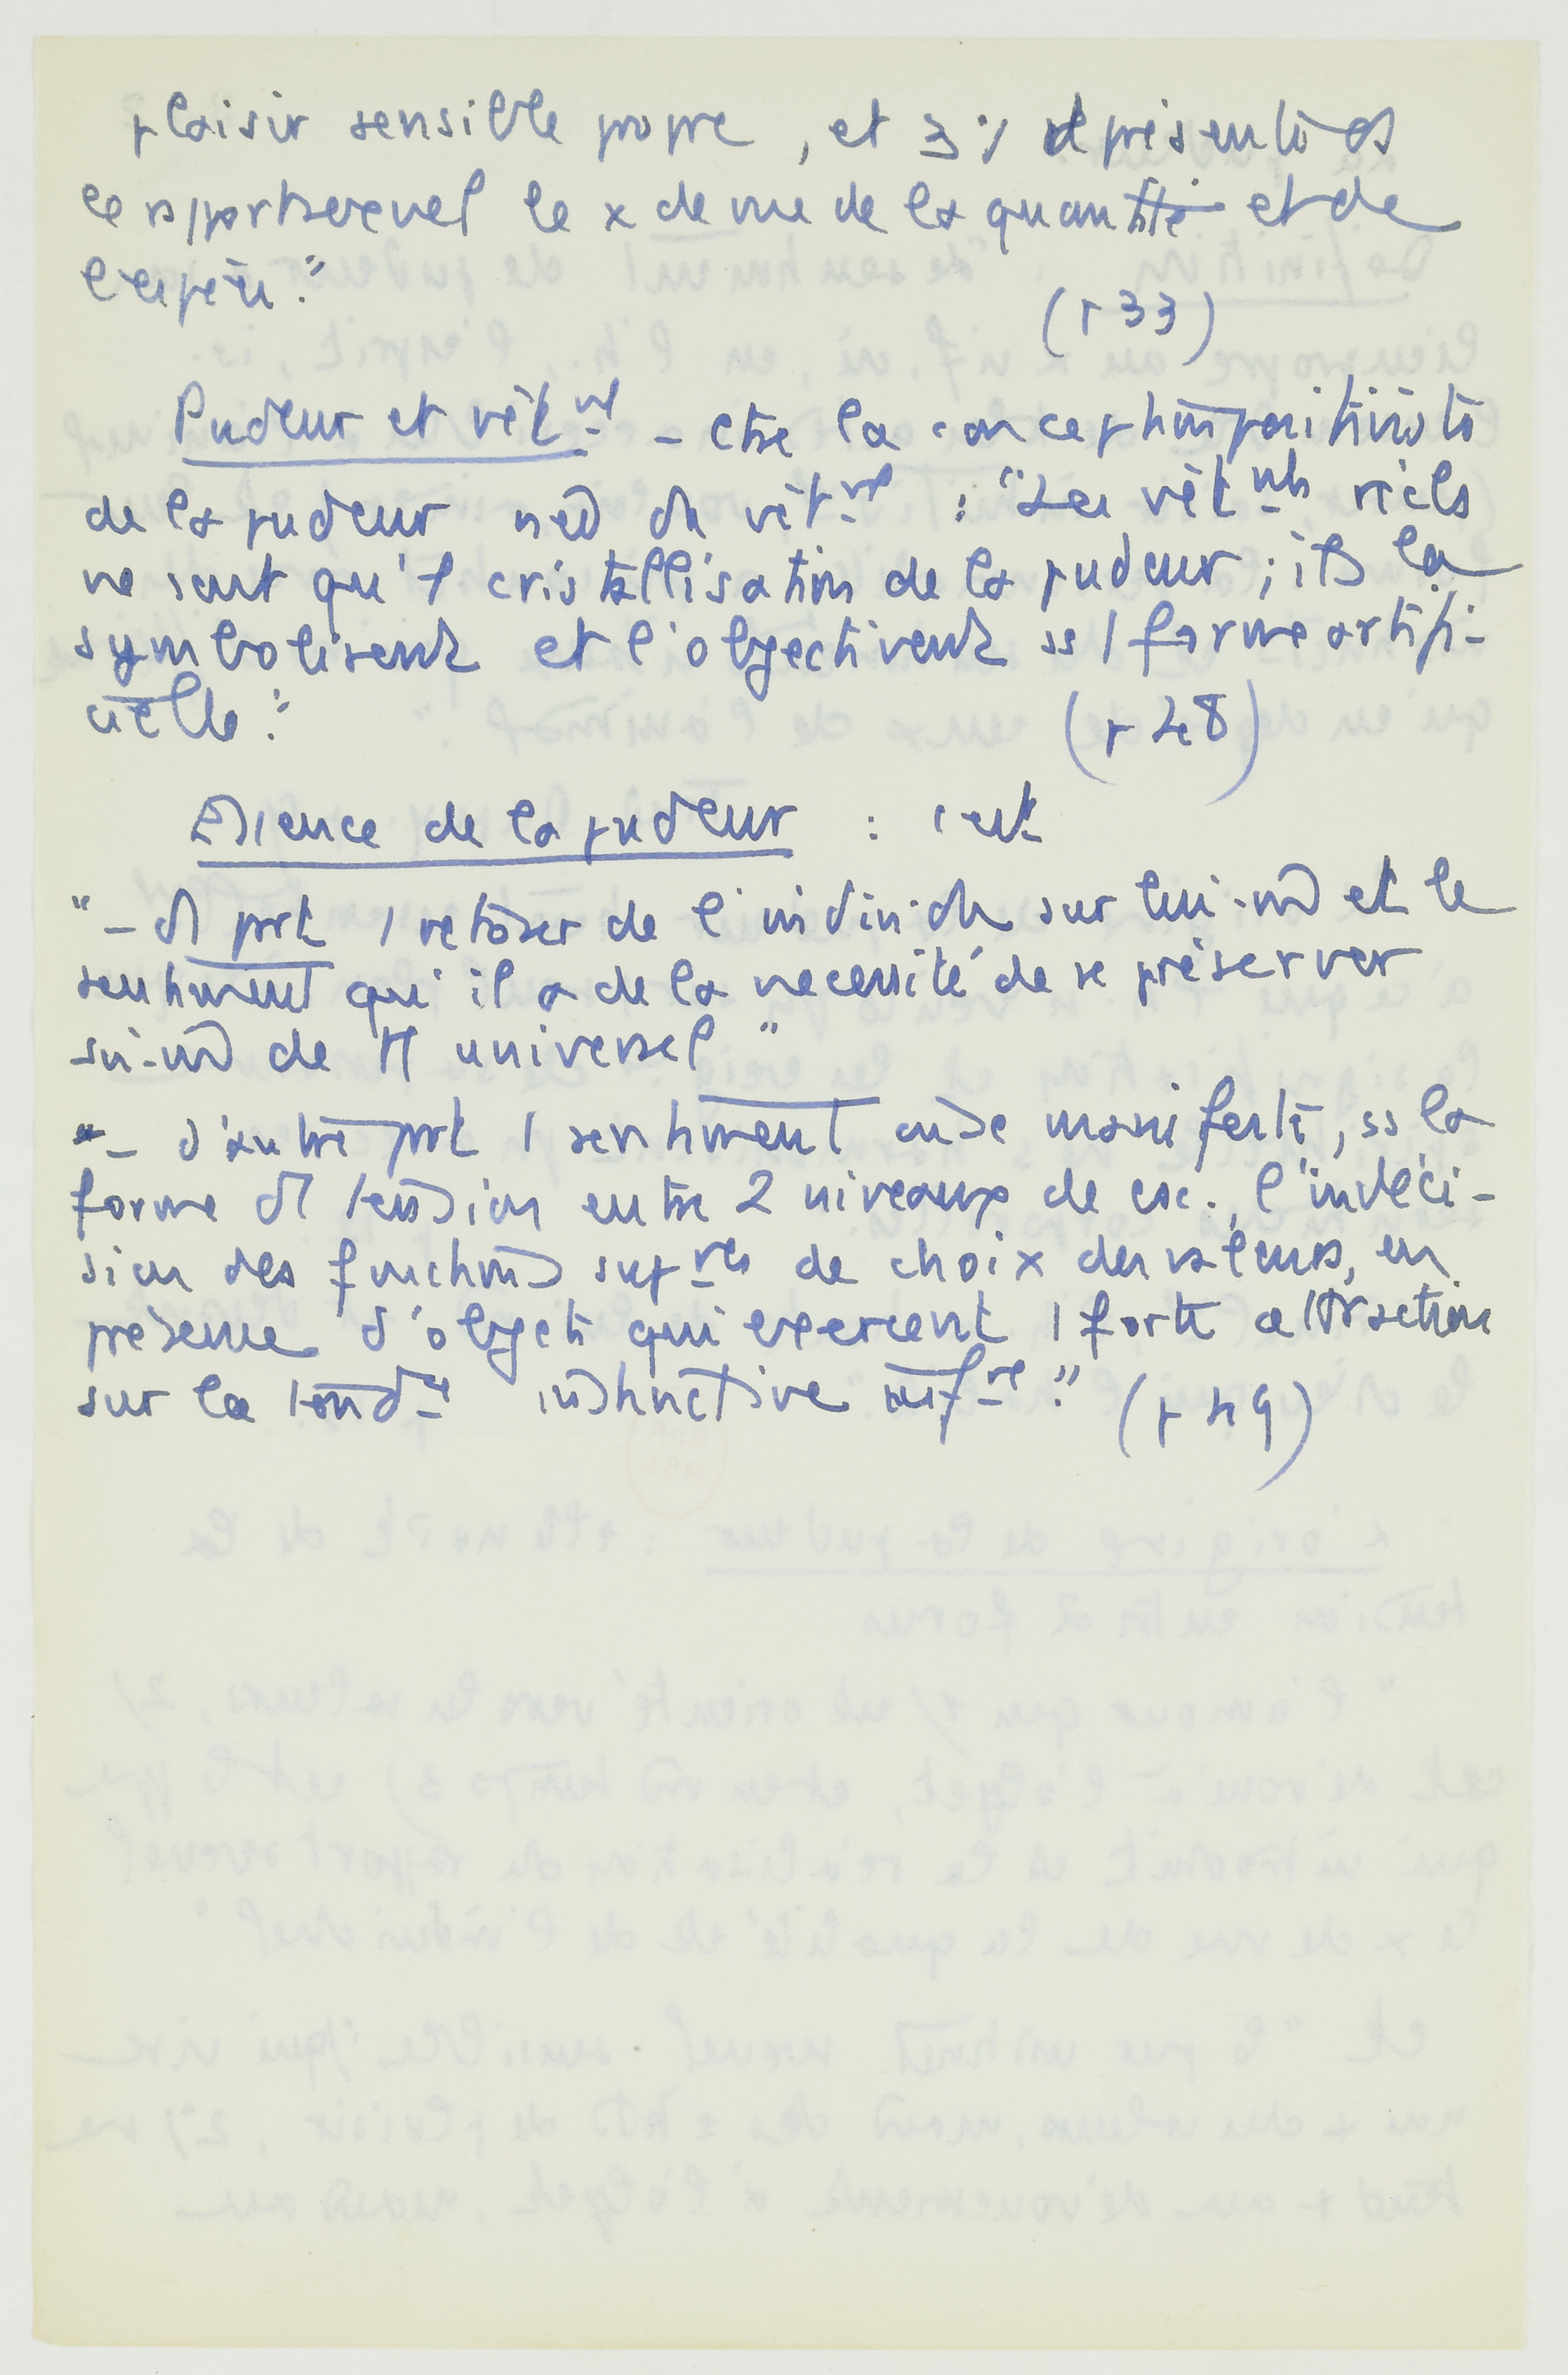 plaisir sensible propre, et 3°/ représente ds
le rapport sexuel le x de vue de la quantité et de
l'espèce."
(p 33)
Pudeur et vêt_nt - ctre la concept° positiviste
de la pudeur née du vêt_nt : "Les vêt_nts réels
ne sont qu'1 cristallisation de la pudeur ; ils la
symbolisent et l'objectivent ss 1 forme artifi-
cielle."
(p 48)
Essence de la pudeur : c'est
"- d1 part 1 retour de l'individu sur lui-m̂ et le
sentiment qu'il a de la nécessité de se préserver
soi-m̂ de tt universel"
"- d'autre part 1 sentiment où se manifeste, ss la
forme d1 tension entre 2 niveaux de csc., l'indéci-
sion des fonctions sup_res de choix des valeurs, en
présence d'objets qui exercent 1 forte attraction
sur la tend_ce instinctive inf_re." (p 49)